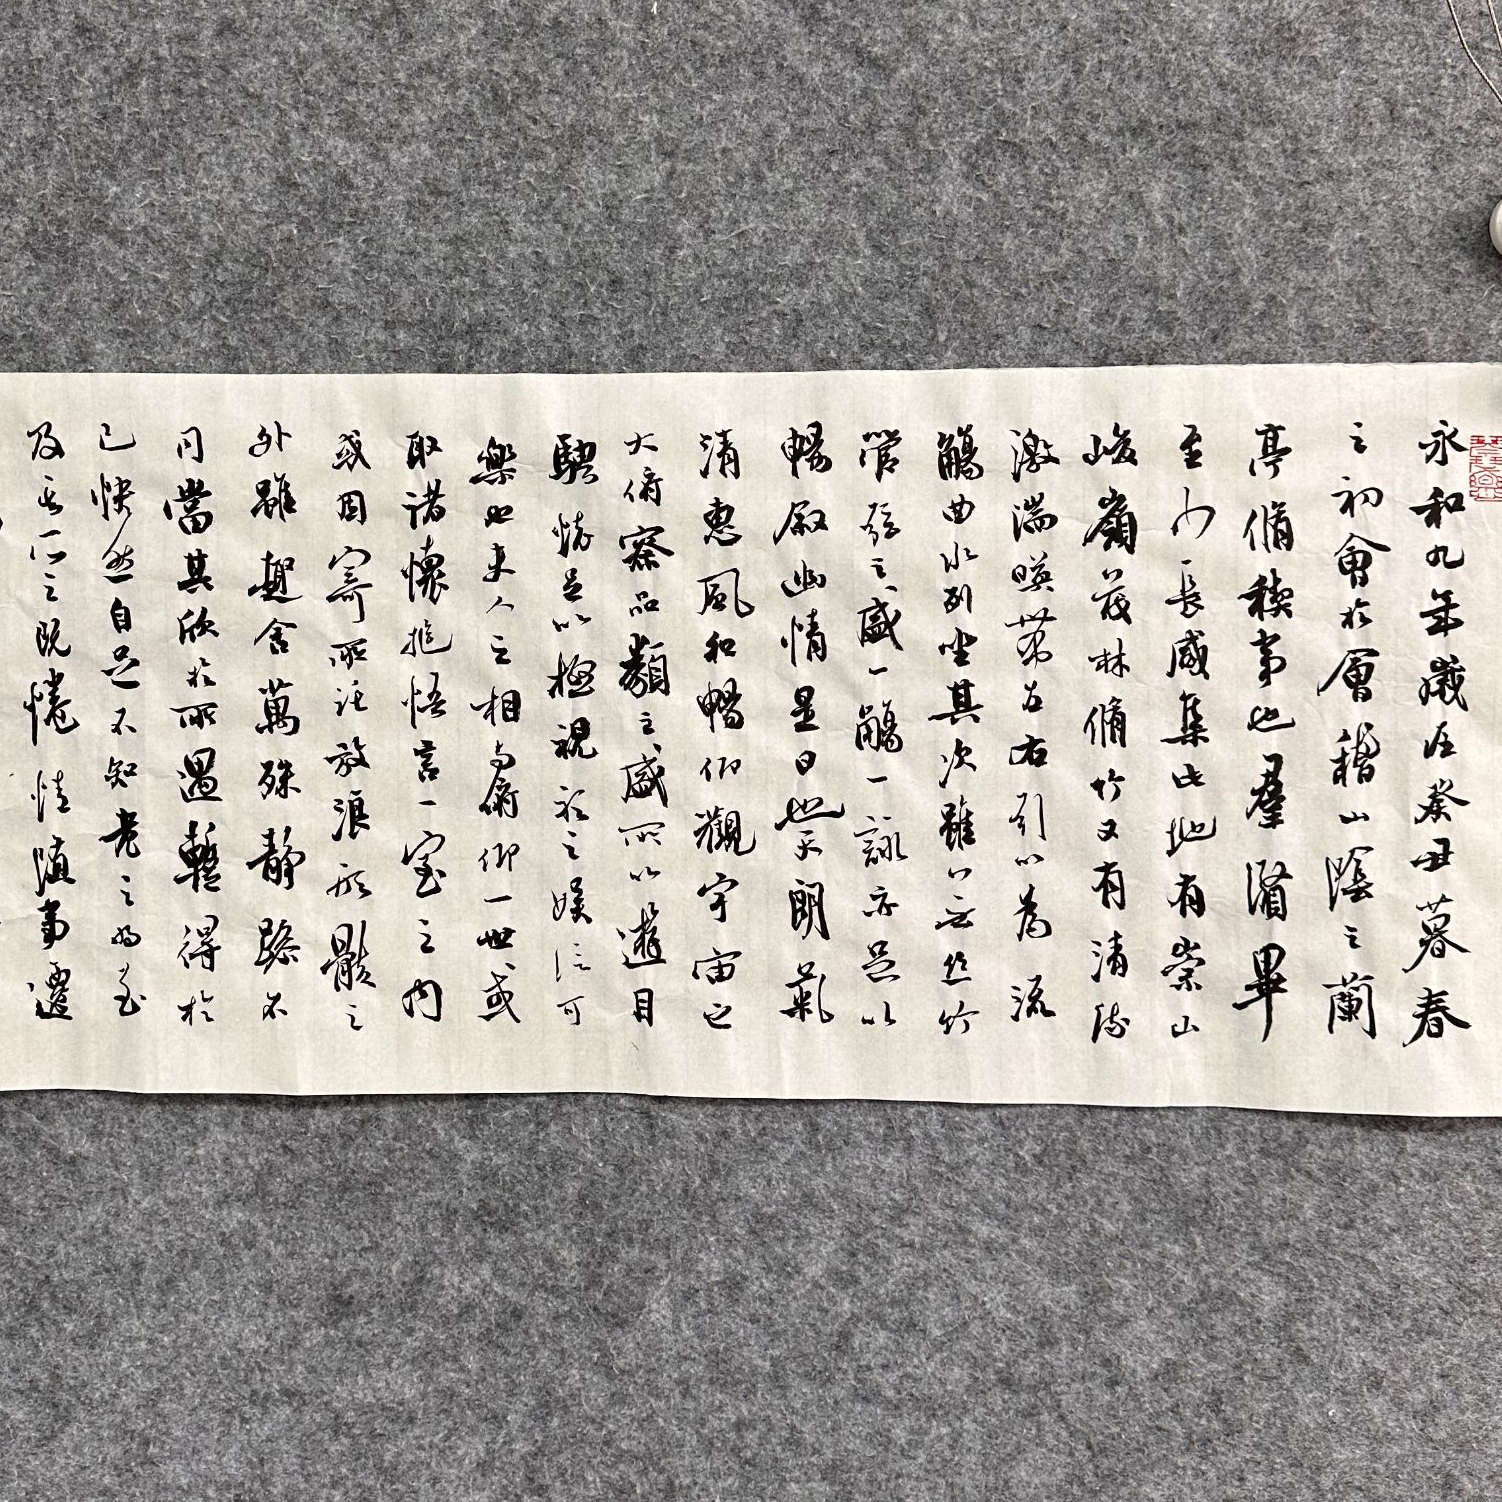 永和九年歲在癸丑暮春
之初會於會稽山陰之蘭
亭脩稧事也羣賢畢
至少長咸集此地有崇山
峻領茂林脩竹又有清流
激湍暎帶左右引以為流
觴曲水列坐其次雖無絲竹
管弦之盛一觴一詠亦足以
暢敘幽情是日也天朗氣
清惠風和暢仰觀宇宙之
大俯察品類之盛所以遊目
騁懷足以極視聽之娛信可
樂也夫人之相與俯仰一世或
取諸懷抱悟言一室之內
或因寄所託放浪形骸之
外雖趣舍萬殊靜躁不
同當其欣於所遇暫得於
己快然自足不知老之將至
及其所之既惓情隨事遷